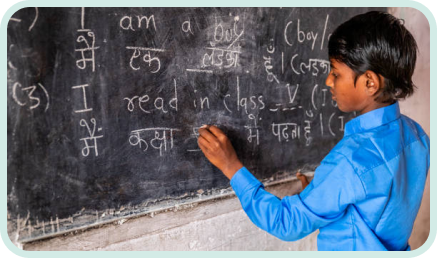 I am a boy (boy/
मैं एक लड़का हूँ । (लड़का
(3) I read in class V (I
मैं कक्षा में पढ़ता हूँ । (